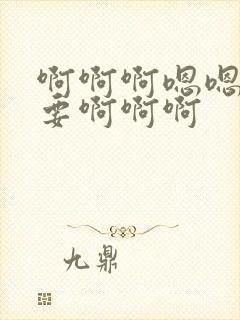 啊啊啊嗯嗯
要啊啊啊
九鼎